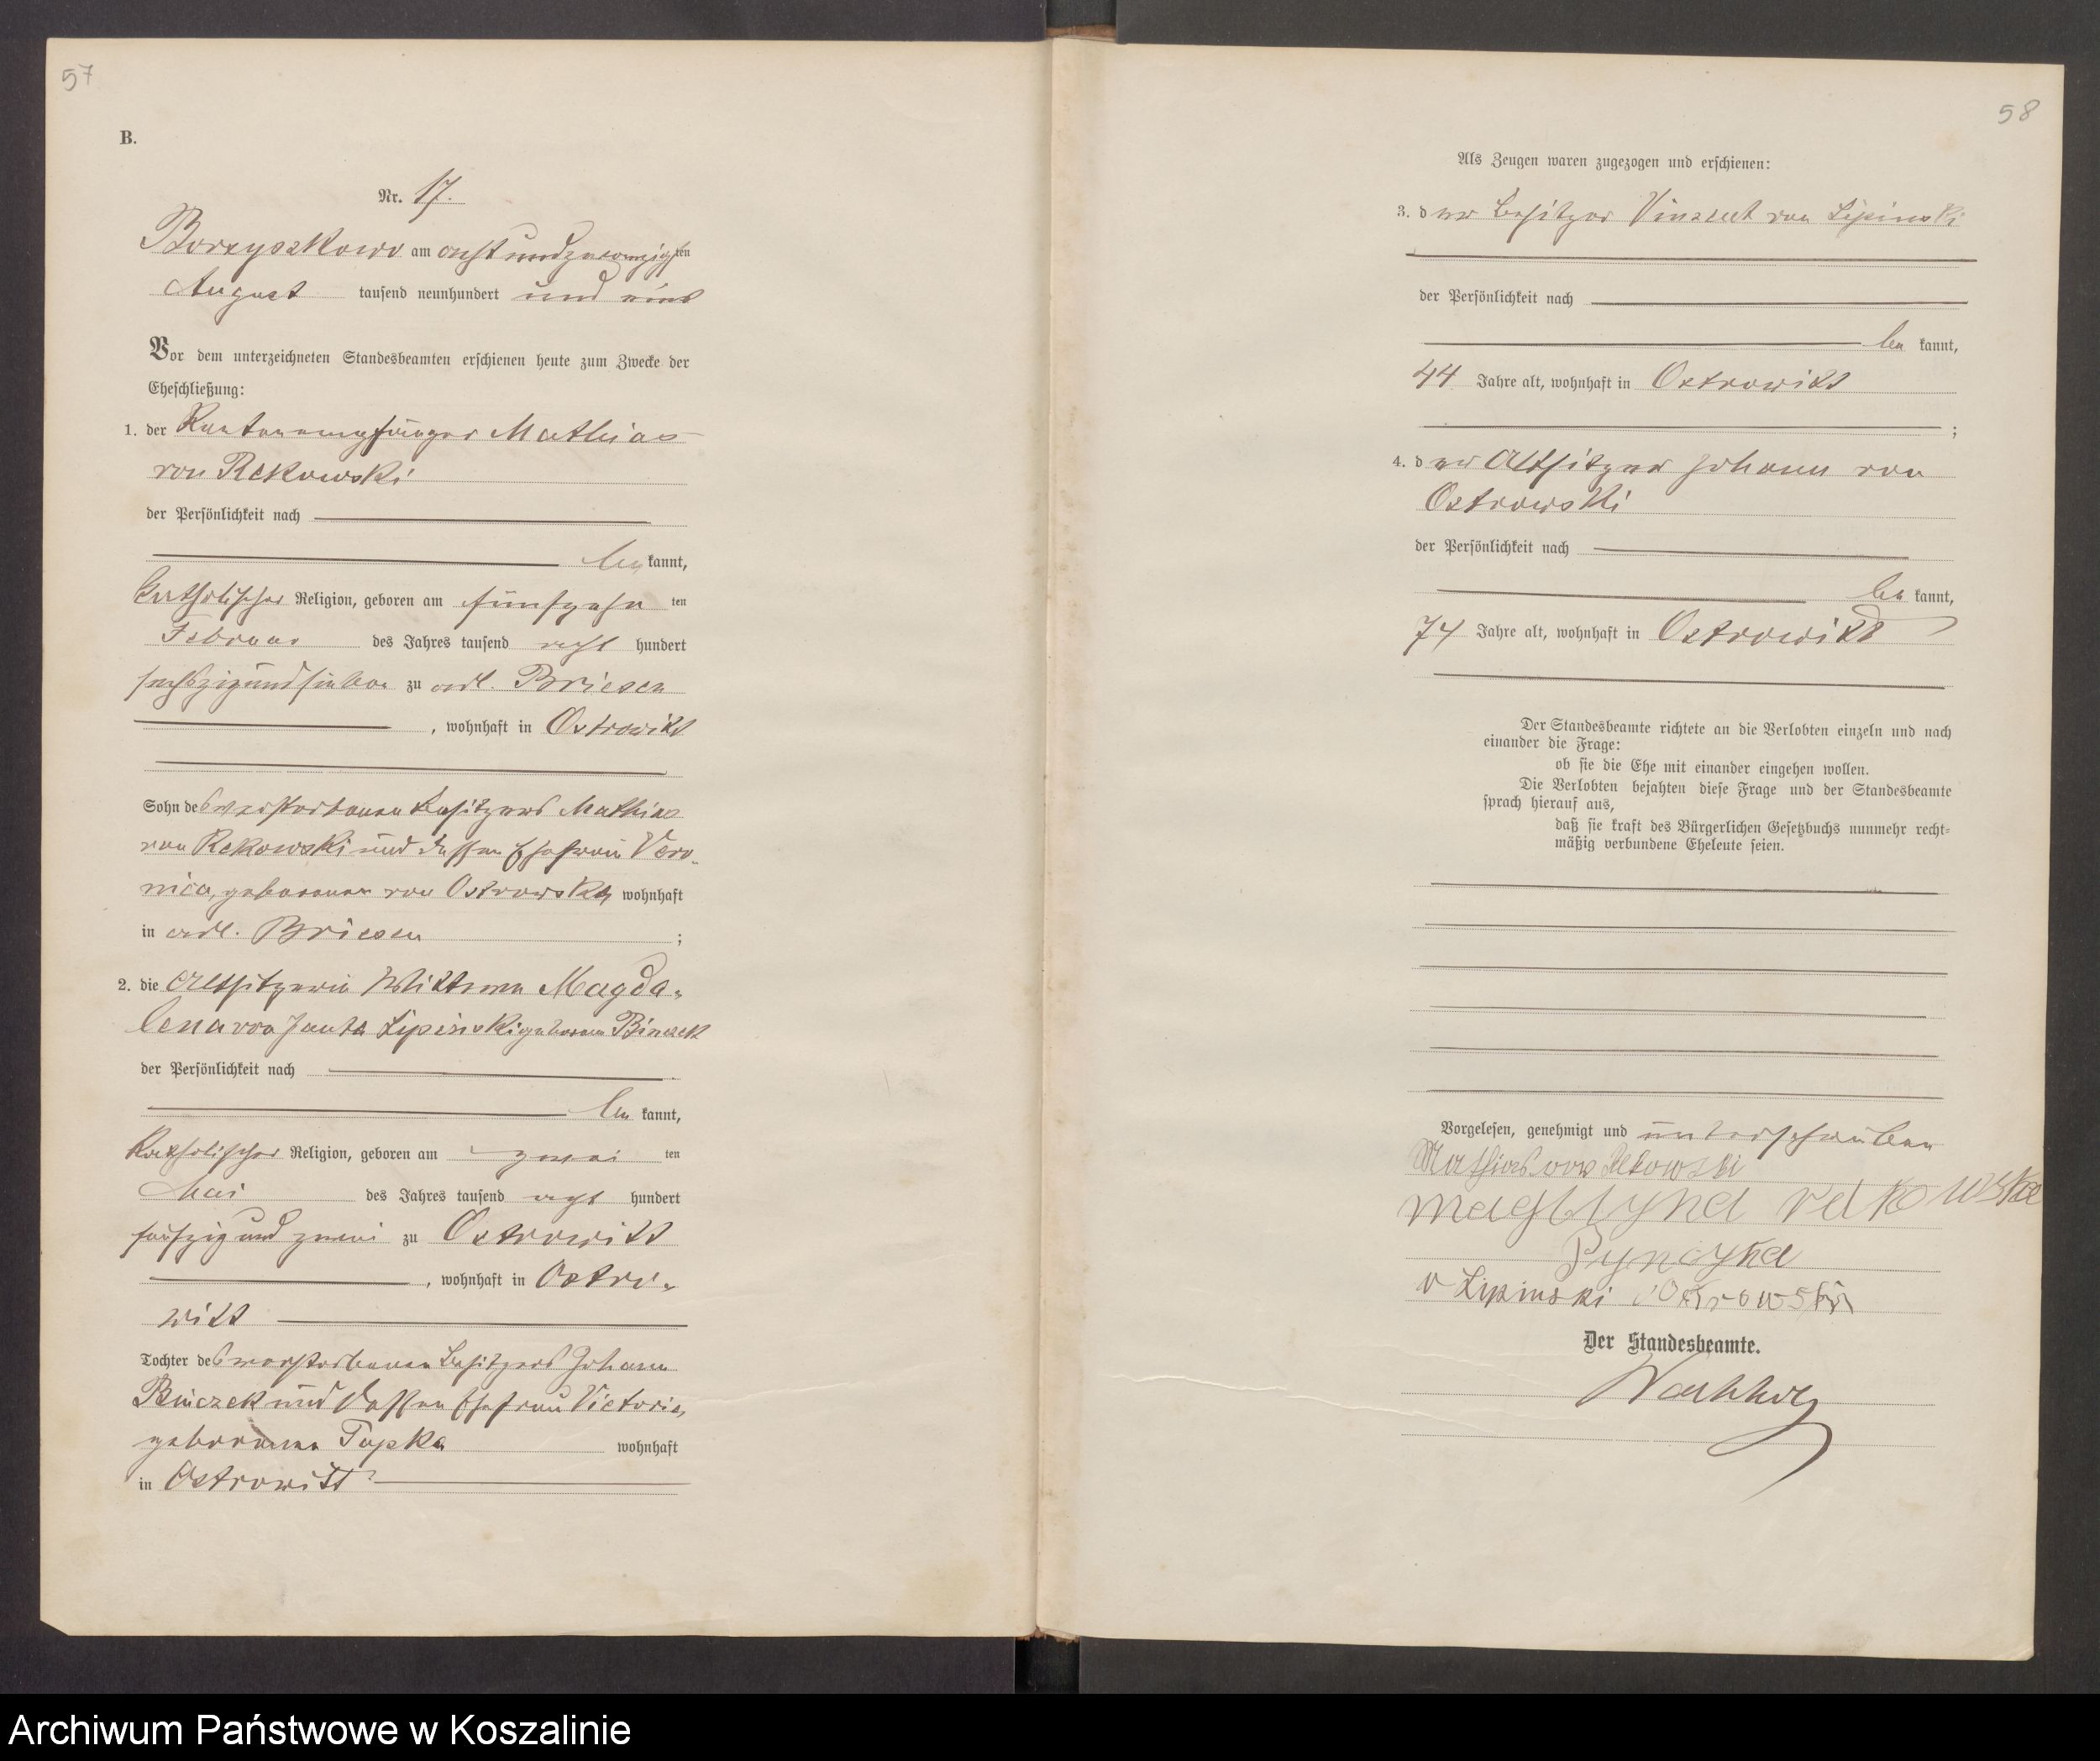 57
B.
Nr. 17.
Borzyszkowo am acht und zwanzigsten
August tausend neunhundert und eins
Vor dem unterzeichneten Standesbeamten erschienen heute zum Zwecke der
Eheschließung:
1. der Rentenempfänger Mathias
von Rekowski
der Persönlichkeit nach
be kannt,
katholischer Religion, geboren am fünfzehn ten
Februar des Jahres tausend acht hundert
sechszig und sieben zu adl. Briesen
, wohnhaft in Ostrowitt
Sohn des verstorbenen Besitzers Mathias
von Rekowski und dessen Ehefrau Vero-
nica, geborenen von Ostrowski, wohnhaft
in adl. Briesen ;
2. die Altsitzerin Wittwe Magda-
lena von Janta Lipinski geborene Binczek
der Persönlichkeit nach
be kannt,
katholischer Religion, geboren am zwei ten
Mai des Jahres tausend acht hundert
fünfzig und zwei zu Ostrowitt
, wohnhaft in Ostro-
witt
Tochter des verstorbenen Besitzers Johann
Binczek und dessen Ehefrau Victoria,
geborenen Topka wohnhaft
in Ostrowitt
58
Als Zeugen waren zugezogen und erschienen:
3. der Besitzer Vinzent von Lipinski
der Persönlichkeit nach
be kannt,
44 Jahre alt, wohnhaft in Ostrowitt
;
4. der Altsitzer Johann von
Ostrowski
der Persönlichkeit nach
be kannt,
74 Jahre alt, wohnhaft in Ostrowitt
Der Standesbeamte richtete an die Verlobten einzeln und nach
einander die Frage:
ob sie die Ehe mit einander eingehen wollen.
Die Verlobten bejahten diese Frage und der Standesbeamte
sprach hierauf aus,
daß sie kraft des Bürgerlichen Gesetzbuchs nunmehr recht-
mäßig verbundene Eheleute seien.
Vorgelesen, genehmigt und unterschrieben
Mathias von Rekowski
v Lipinski Ostrowski
Der Standesbeamte.
Archiwum Państwowe w Koszalinie